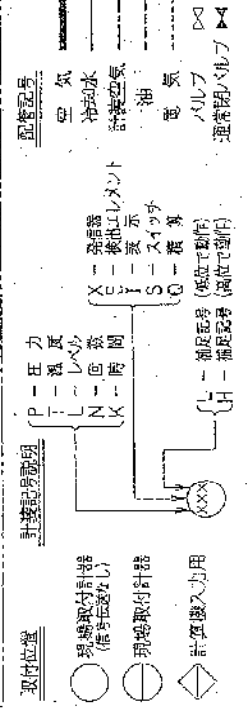 取付位置
現場取付計器
(信号伝送なし)
現場取付計器
計算機入力用
計装記号説明
P － 圧 力
T － 温 度
L － レベル
N － 回 数
K － 時 間
X － 発信器
E － 検出エレメント
I － 表 示
S － スイッチ
Q － 積 算
L － 補足記号 (低位で動作)
H － 補足記号 (高位で動作)
XXX
配管記号
空 気
冷却水
計装空気
油
電 気
バルブ
通常閉バルブ